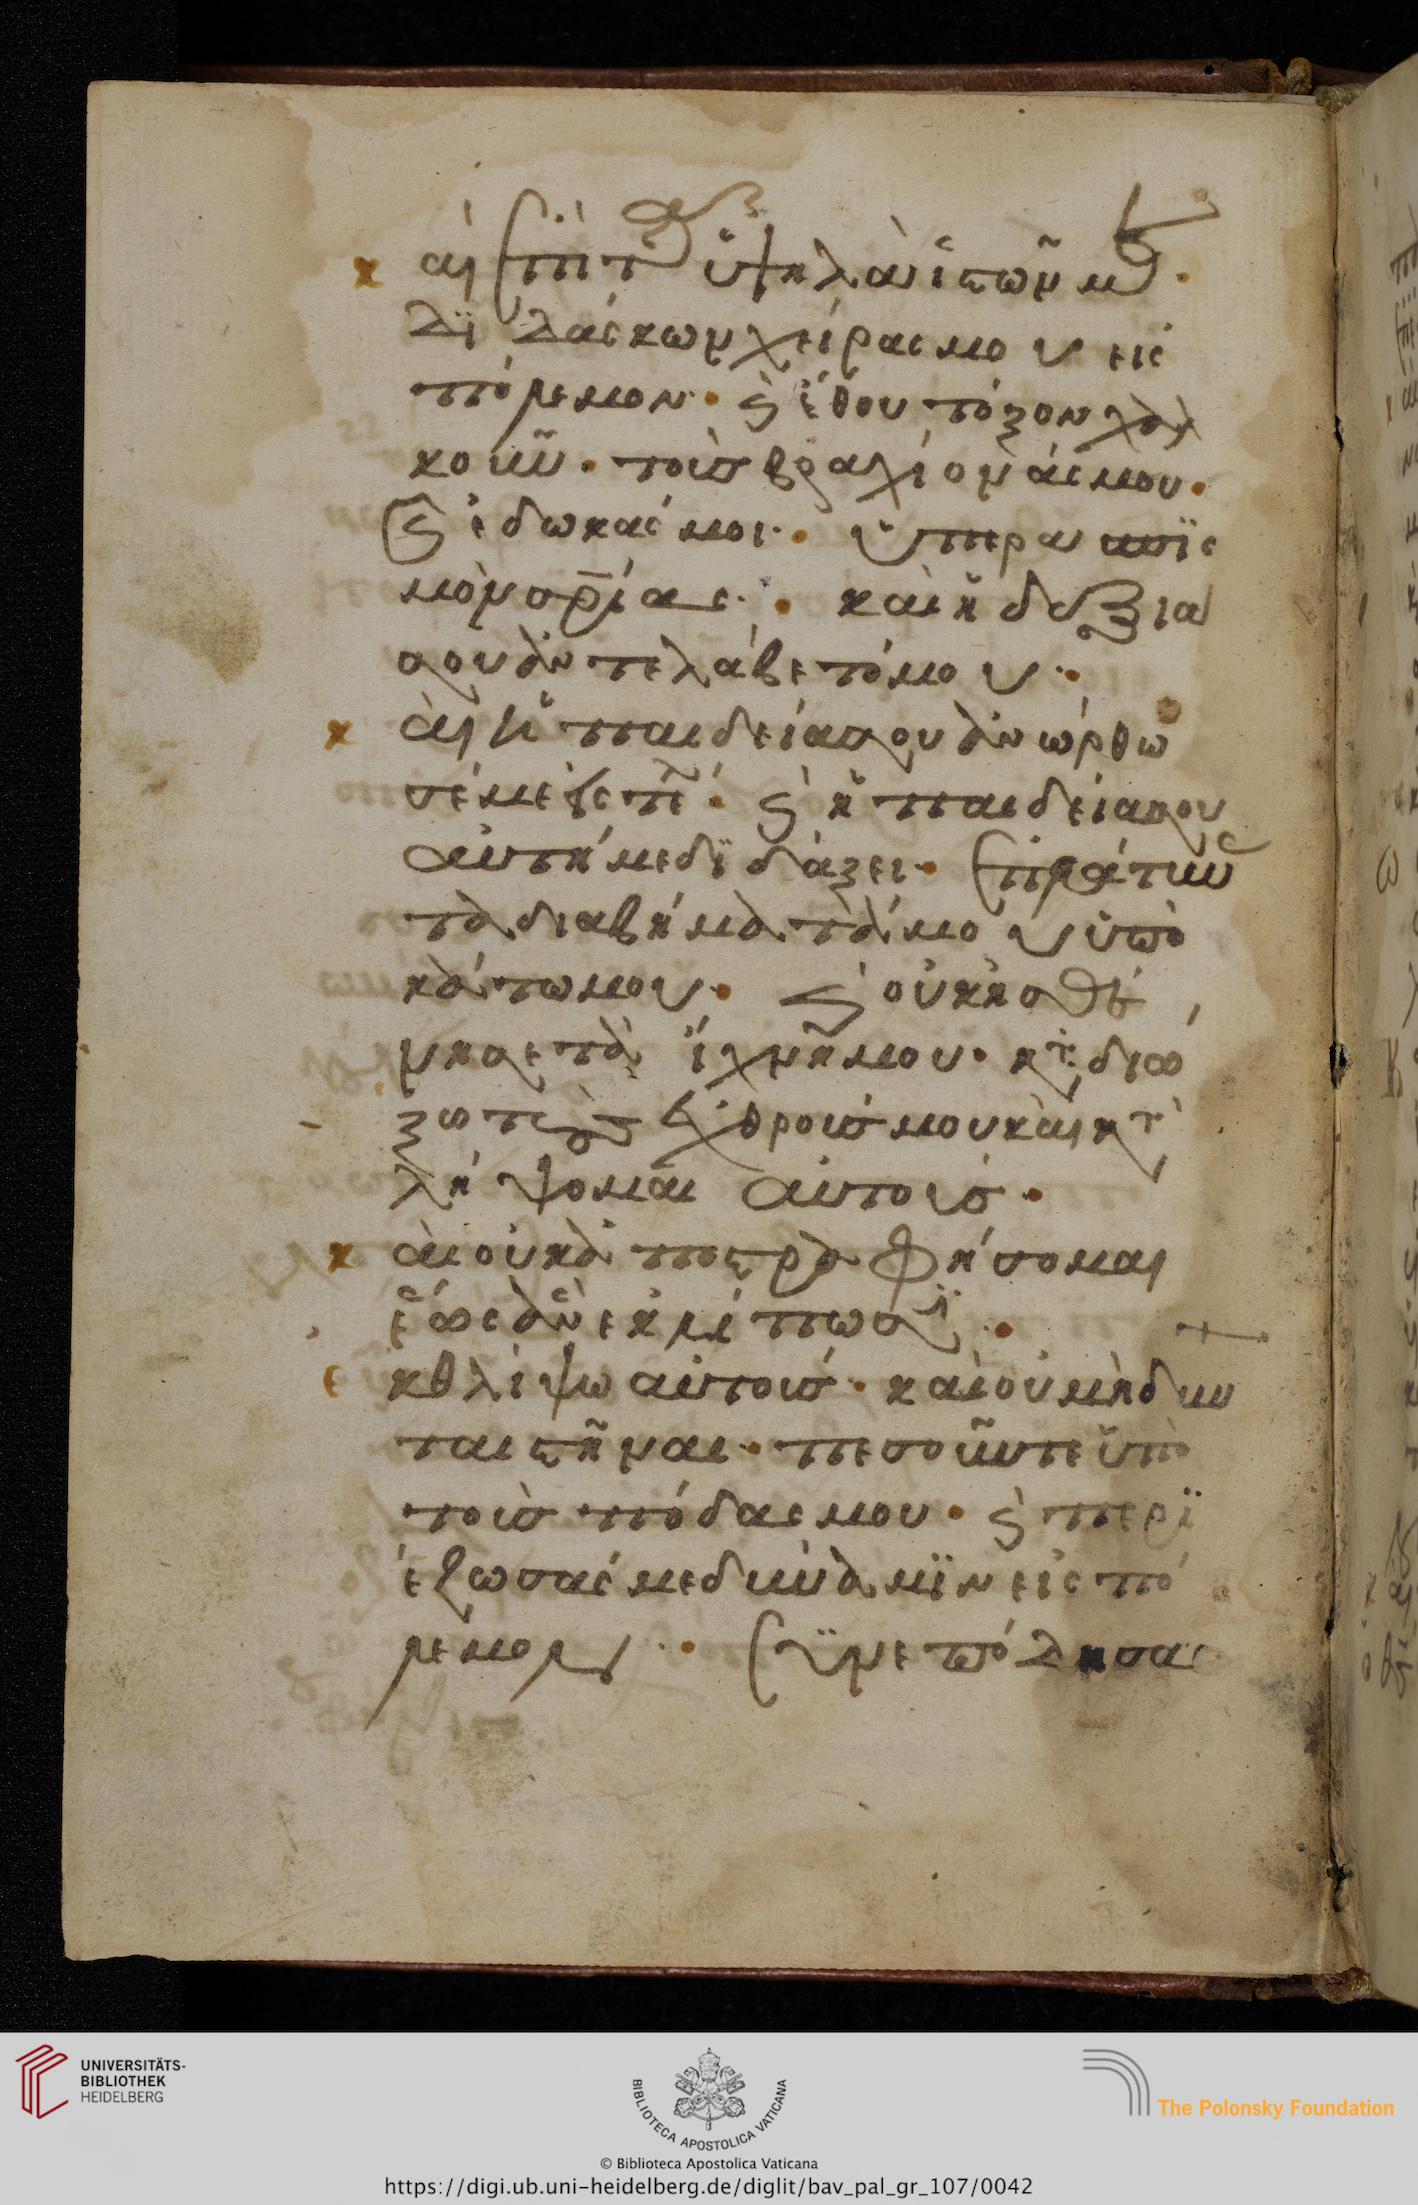 καὶ ἐπὶ τὰ ὑψηλὰ ἱστῶν με·
διδάσκων χεῖρας μου εἰς
πόλεμον· καὶ ἔθου τόξον χαλ
κοῦν· τοὺς βραχίονάς μου·
καὶ ἔδωκάς μοι· ὑπερασπισ
μὸν σρίας· καὶ ἡ δεξιά
σου ἀντελάβετό μου·
καὶ ἡ παιδεία σου ἀνώρθω
σέ με εἰς τέ· καὶ ἡ παιδεία σου
αὐτή με διδάξει· ἐπλάτυνας
τὰ διαβήματά μου ὑπο
κάτω μου· καὶ οὐκ ἠσθέ
νησε τὰ ἴχνη μου· καταδιώ
ξω τοὺς ἐχθρούς μου καὶ κατα
λήψομαι αὐτούς·
καὶ οὐκ ἀποστραφήσομαι
ἕως ἂν ἐκλίπωσι·
ἐκθλίψω αὐτούς· καὶ οὐ μὴ δύν
ται στῆναι· πεσοῦνται ὑπὸ
τοὺς πόδας μου· καὶ περι
έζωσάς με δύναμιν εἰς πό
λεμον· συνεπόδησας
UNIVERSITÄTS-
BIBLIOTHEK
HEIDELBERG
BIBLIOTECA APOSTOLICA VATICANA
The Polonsky Foundation
© Biblioteca Apostolica Vaticana
https://digi.ub.uni-heidelberg.de/diglit/bav_pal_gr_107/0042